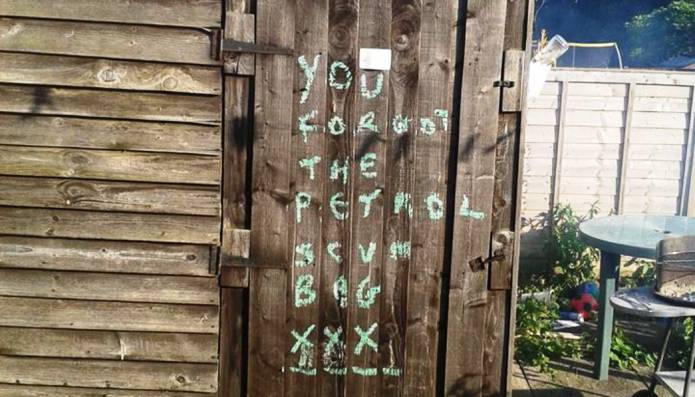 YOU
FORGOT
THE
PETROL
SCUM
BAG
XXX